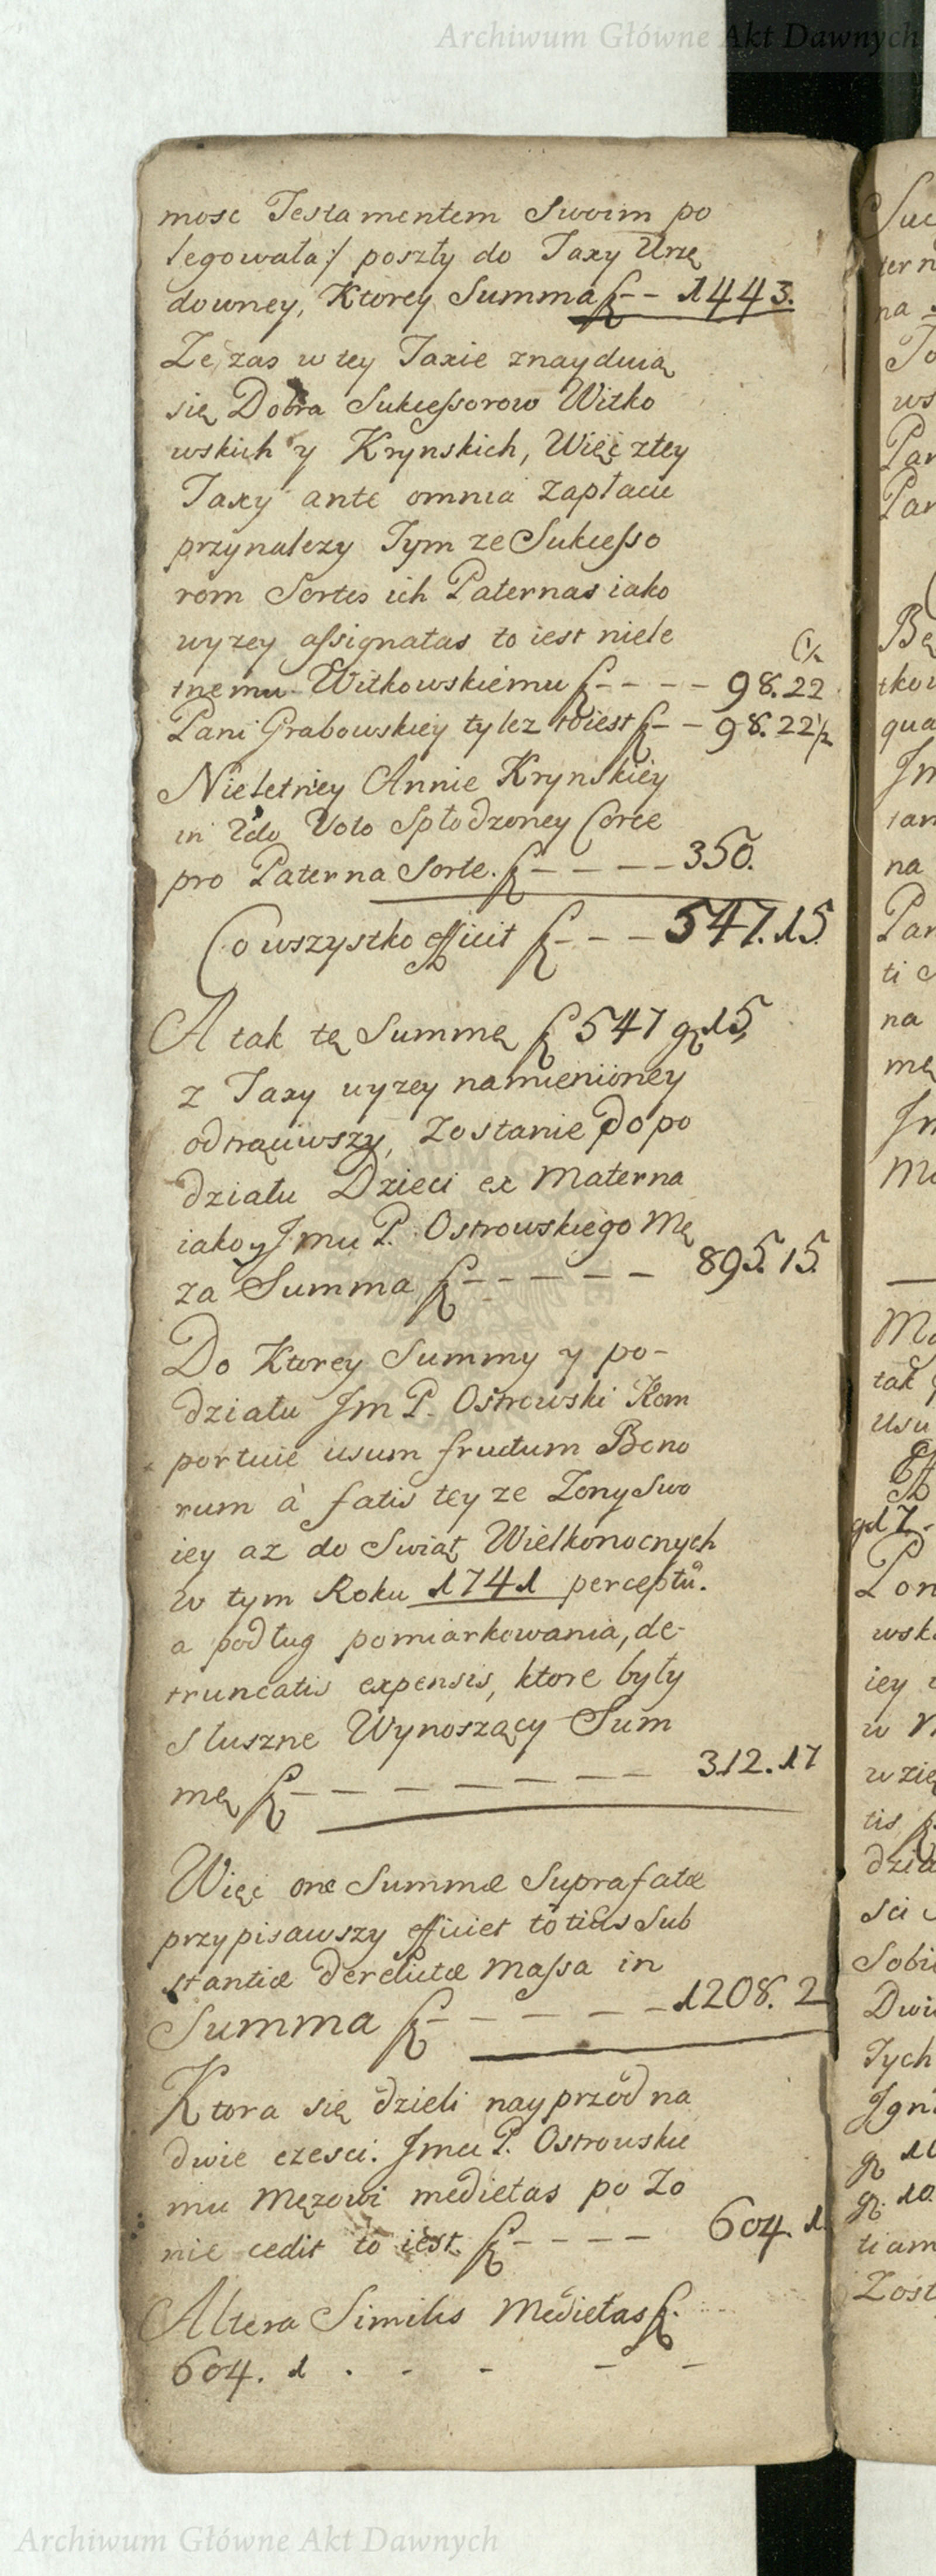 Archiwum Główne Akt Dawnych
mosc Testamentem Swoim po
legowała:/ poszły do Taxy Urzę
downey, Ktorey Summa f – – 1443.
Ze zas w tey Taxie znayduią
się Dobra Sukcessorow Witko
wskich y Krynskich, Więc ztey
Taxy ante omnia zapłacic
przynalezy Tym ze Sukcesso
rom Sortes ich Paternas iako
wyzey assignatas to iest niele
tnemu Witkowskiemu f – – – – 98.22 1/2
Pani Grabowskiey tylez to iest f – – 98.22 1/2
Nieletniey Annie Krynskiey
in 2do Voto Spłodzoney Corce
pro Paterna Sorte. f – – – – 350.
Co wszystko efficit f – – – 547.15.
A tak tę Summę f 547 gr 15,
z Taxy wyzey namienioney
odtrąciwszy, Zostanie do po
działu Dzieci ex Materna
iako y Jmu P. Ostrowskiego Mę
za Summa f – – – – – 895.15.
Do Ktorey Summy y po-
działu Jm P. Ostrowski Kom
portuie usum fructum Bono
rum à fatis tey ze Zony Swo
iey az do Swiąt Wielkonocnych
w tym Roku 1741 perceptũ.
a podług pomiarkowania, de-
truncatis expensis, ktore były
Słuszne Wynoszący Sum
mę f – – – – – – – 312.17
Więc onæ Summæ Suprafatæ
przypisawszy efficiet totius Sub
stantiæ derelictæ Massa in
Summa f – – – – – 1208. 2
Ktora się dzieli nayprzòd na
dwie czesci. Jmu P. Ostrowskie
mu Męzowi medietas po Zo
nie cedit to iest f – – – – 604. 1.
Altera Similis Medietas f.
604. 1 . - - – –
Suc
ter n
na
To
ws
Pan
Pan
Bę
tkow
qua
Jm
tan
na
Pan
ti
na
mę
Jm
Ma
Ma
tak
usu
Eff
gd 7.
Pon
wsk
iey
w
wzię
tis
dzia
sci
Sobi
Dwi
Tych
Jgn
gr 10
gr. 10
tiam
Zost
Archiwum Główne Akt Dawnych